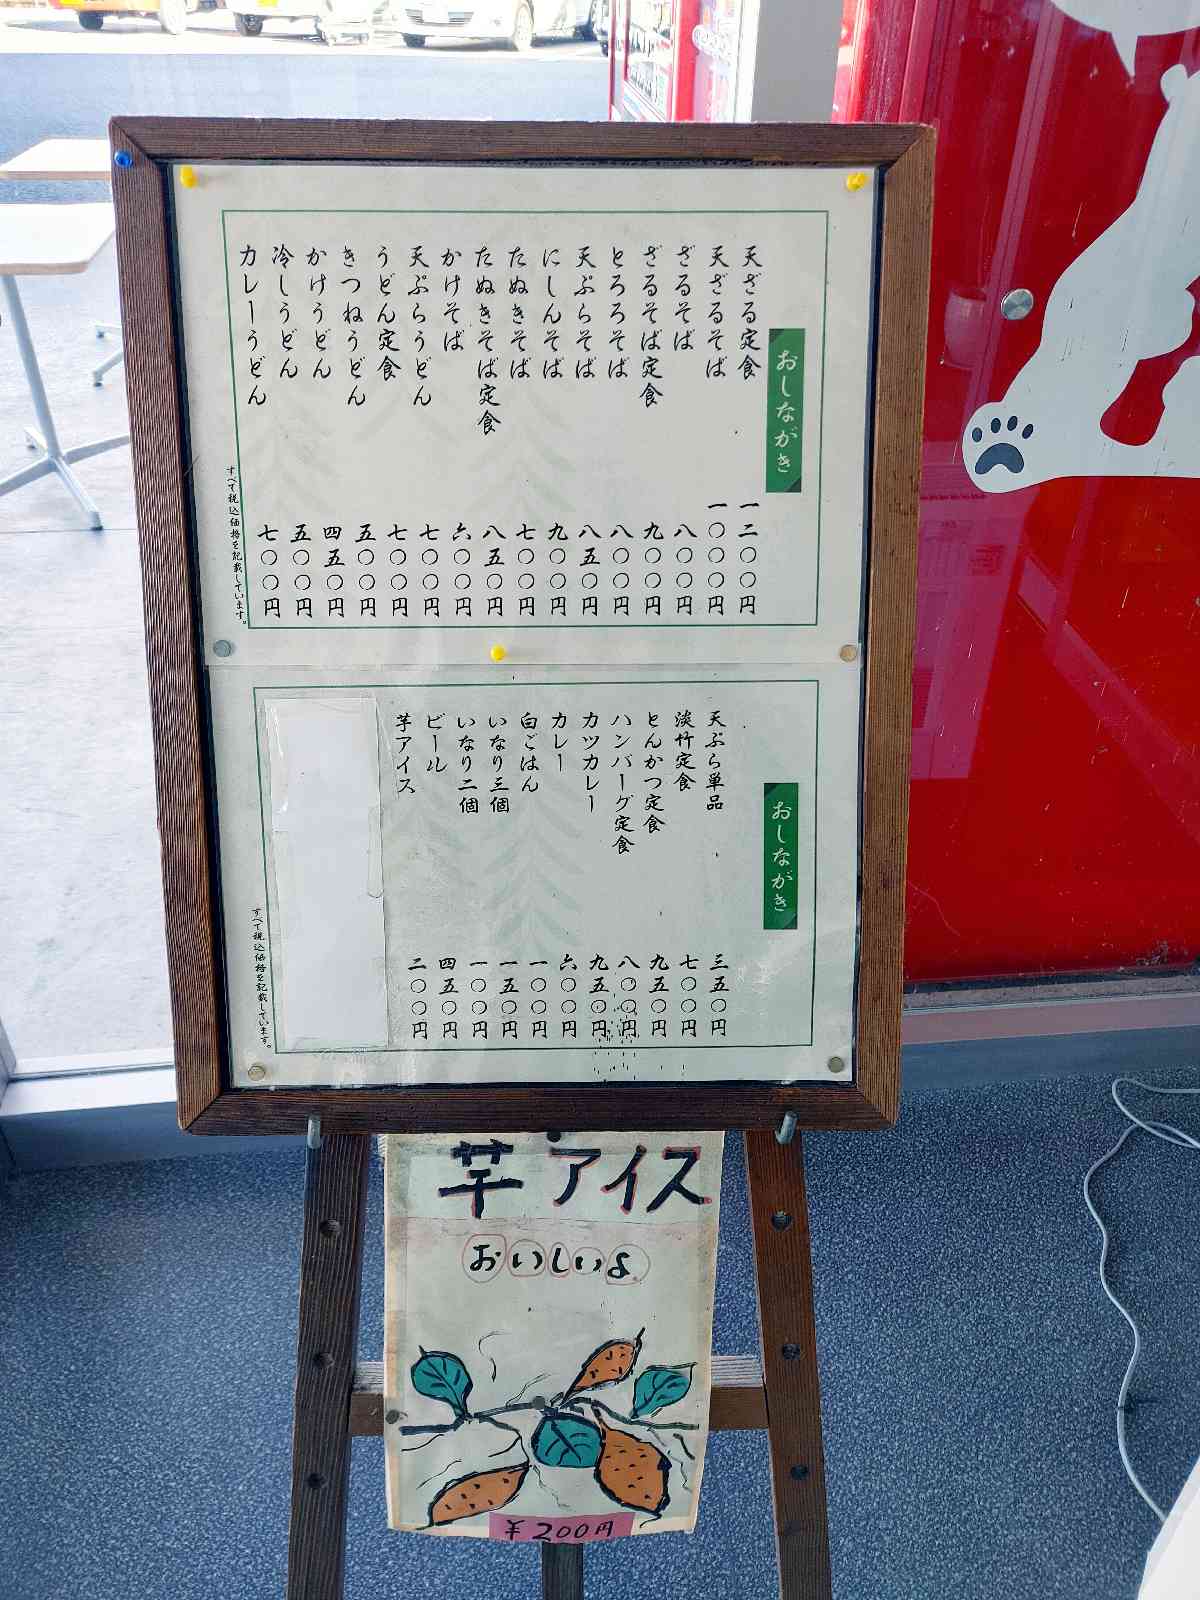 おしながき
天ざる定食 一二〇〇円
天ざるそば 一〇〇〇円
ざるそば 八〇〇円
ざるそば定食 九〇〇円
とろろそば 八〇〇円
天ぷらそば 八五〇円
にしんそば 九〇〇円
たぬきそば 七〇〇円
たぬきそば定食 八五〇円
かけそば 六〇〇円
天ぷらうどん 七〇〇円
うどん定食 七〇〇円
きつねうどん 五〇〇円
かけうどん 四五〇円
冷しうどん 五〇〇円
カレーうどん 七〇〇円
すべて税込価格を記載しています。
おしながき
天ぷら単品 三五〇円
淡竹定食 七〇〇円
とんかつ定食 九五〇円
ハンバーグ定食 八〇〇円
カツカレー 九五〇円
カレー 六〇〇円
白ごはん 一〇〇円
いなり三個 一五〇円
いなり二個 一〇〇円
ビール 四五〇円
芋アイス 二〇〇円
すべて税込価格を記載しています。
芋アイス
おいしいよ
¥200円